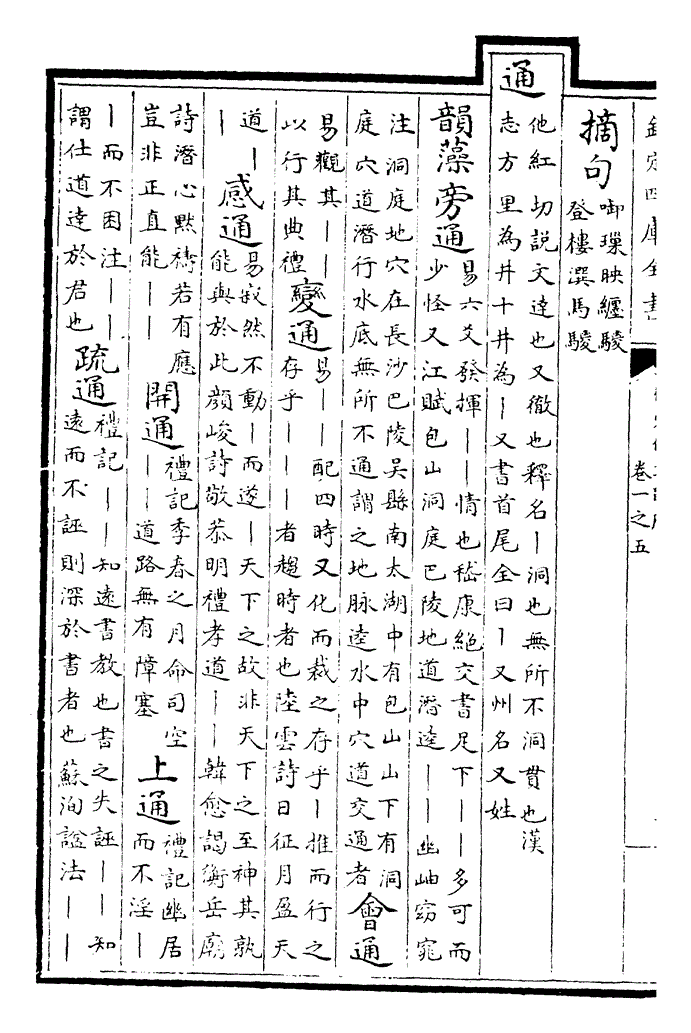 欽定四庫全書
卷一之五
摘句
啣璅映纒騣
登樓選馬騣
通
他紅切説文達也又徹也釋名｜洞也無所不洞貫也漢
志方里為井十井為｜又書首尾全曰｜又州名又姓
韻藻旁通
易六爻發揮｜｜情也嵇康絶交書足下｜｜｜多可而
少怪又江賦包山洞庭巴陵地道潛逵｜｜幽岫窈窕
注洞庭地穴在長沙巴陵吳縣南太湖中有包山山下有洞
庭穴道潛行水底無所不通謂之地脉逵水中穴道交通者
會通
易觀其｜｜
以行其典禮
變通
易｜｜配四時又化而裁之存乎｜推而行之
存乎｜｜｜｜者趨時者也陸雲詩日征月盈天
道｜
｜
感通
易寂然不動｜而遂｜天下之故非天下之至神其孰
能與於此顔峻詩敬恭明禮孝道｜｜韓愈謁衡岳廟
詩潛心黙禱若有應
豈非正直能｜｜
開通
禮記季春之月命司空
｜｜道路無有障塞
上通
禮記幽居
而不淫｜
｜而不困注｜｜
謂仕道達於君也
疏通
禮記｜｜知遠書教也書之失誣｜｜知
遠而不誣則深於書者也蘇洵諡法｜｜